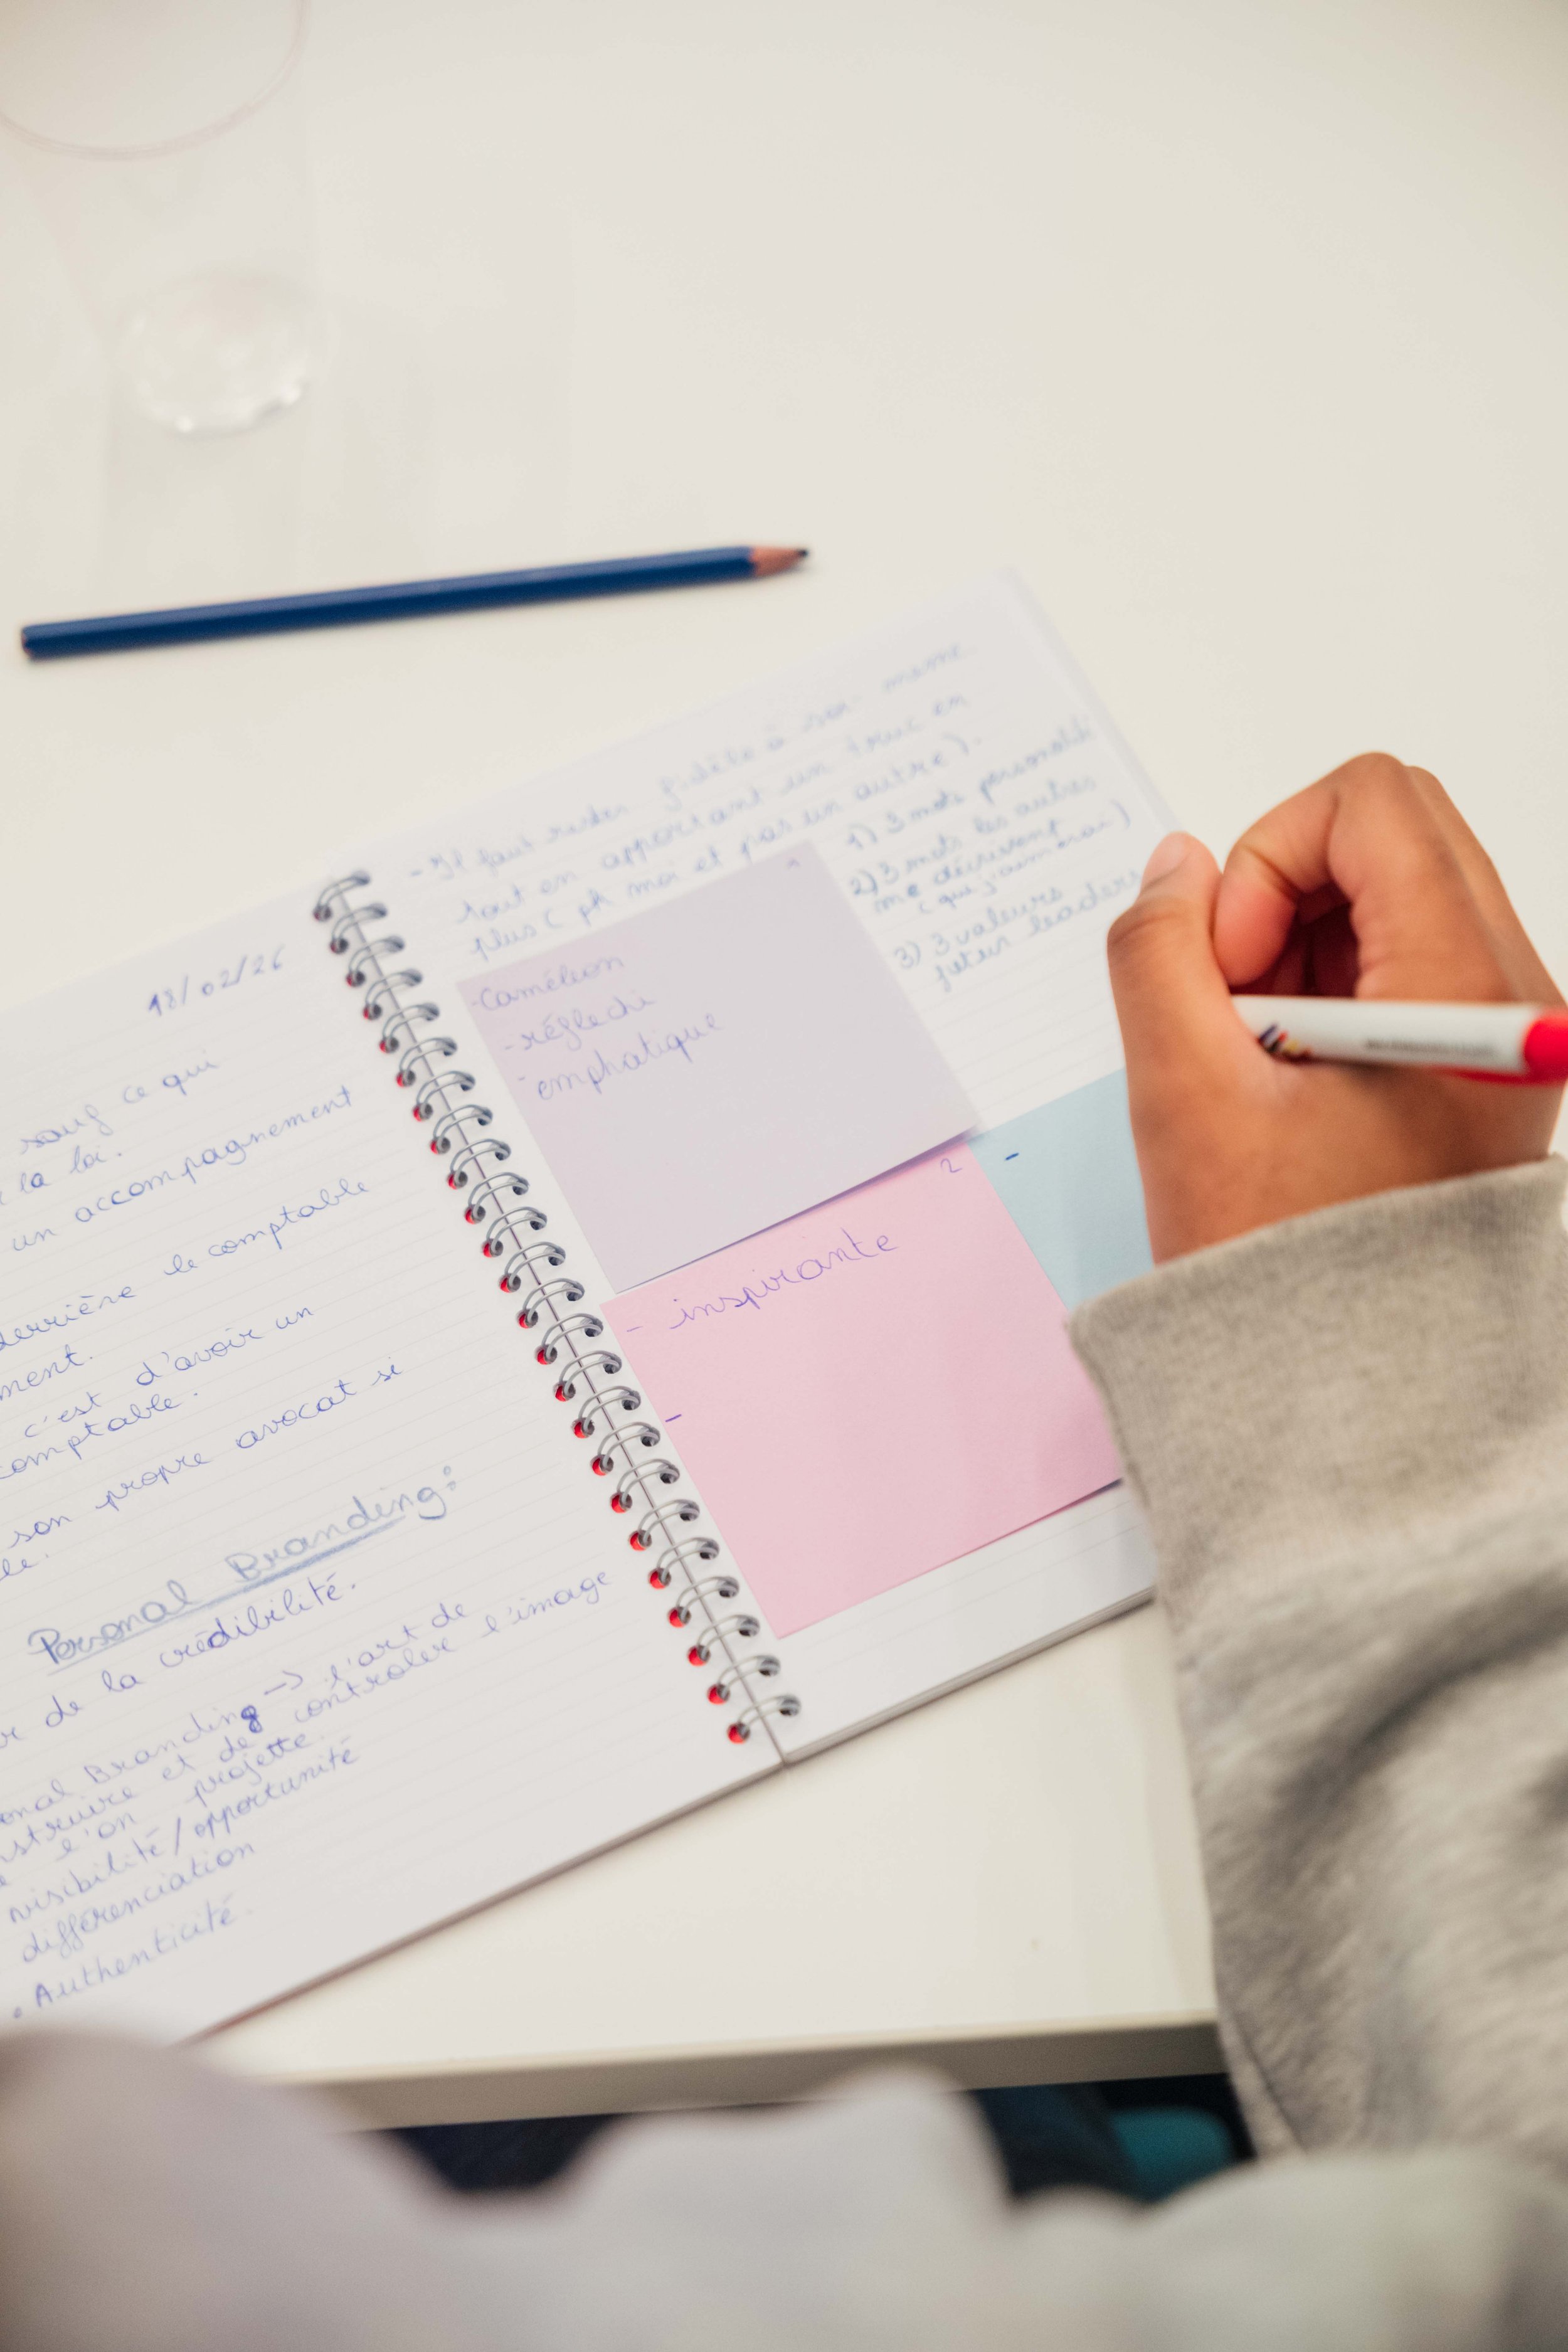 18/02/26
sauf ce qui
la loi.
un accompagnement
derrière le comptable
ment.
c'est d'avoir un
comptable.
son propre avocat si
le.
Personal Branding:
de la crédibilité.
onal Branding -> l'art de
struire et de contrôler l'image
l'on projette.
visibilité/opportunité
différenciation
• Authenticité.
- Il faut rester fidèle à soi même
tout en apportant un truc en
plus ( pk moi et pas un autre).
1) 3 mots personalité
2) 3 mots les autres
me décrivent
( que j'aimerai)
3) 3 valeurs
futur leaders
1
- Caméléon
- réflechi
- emphatique
2
- inspirante
-
-